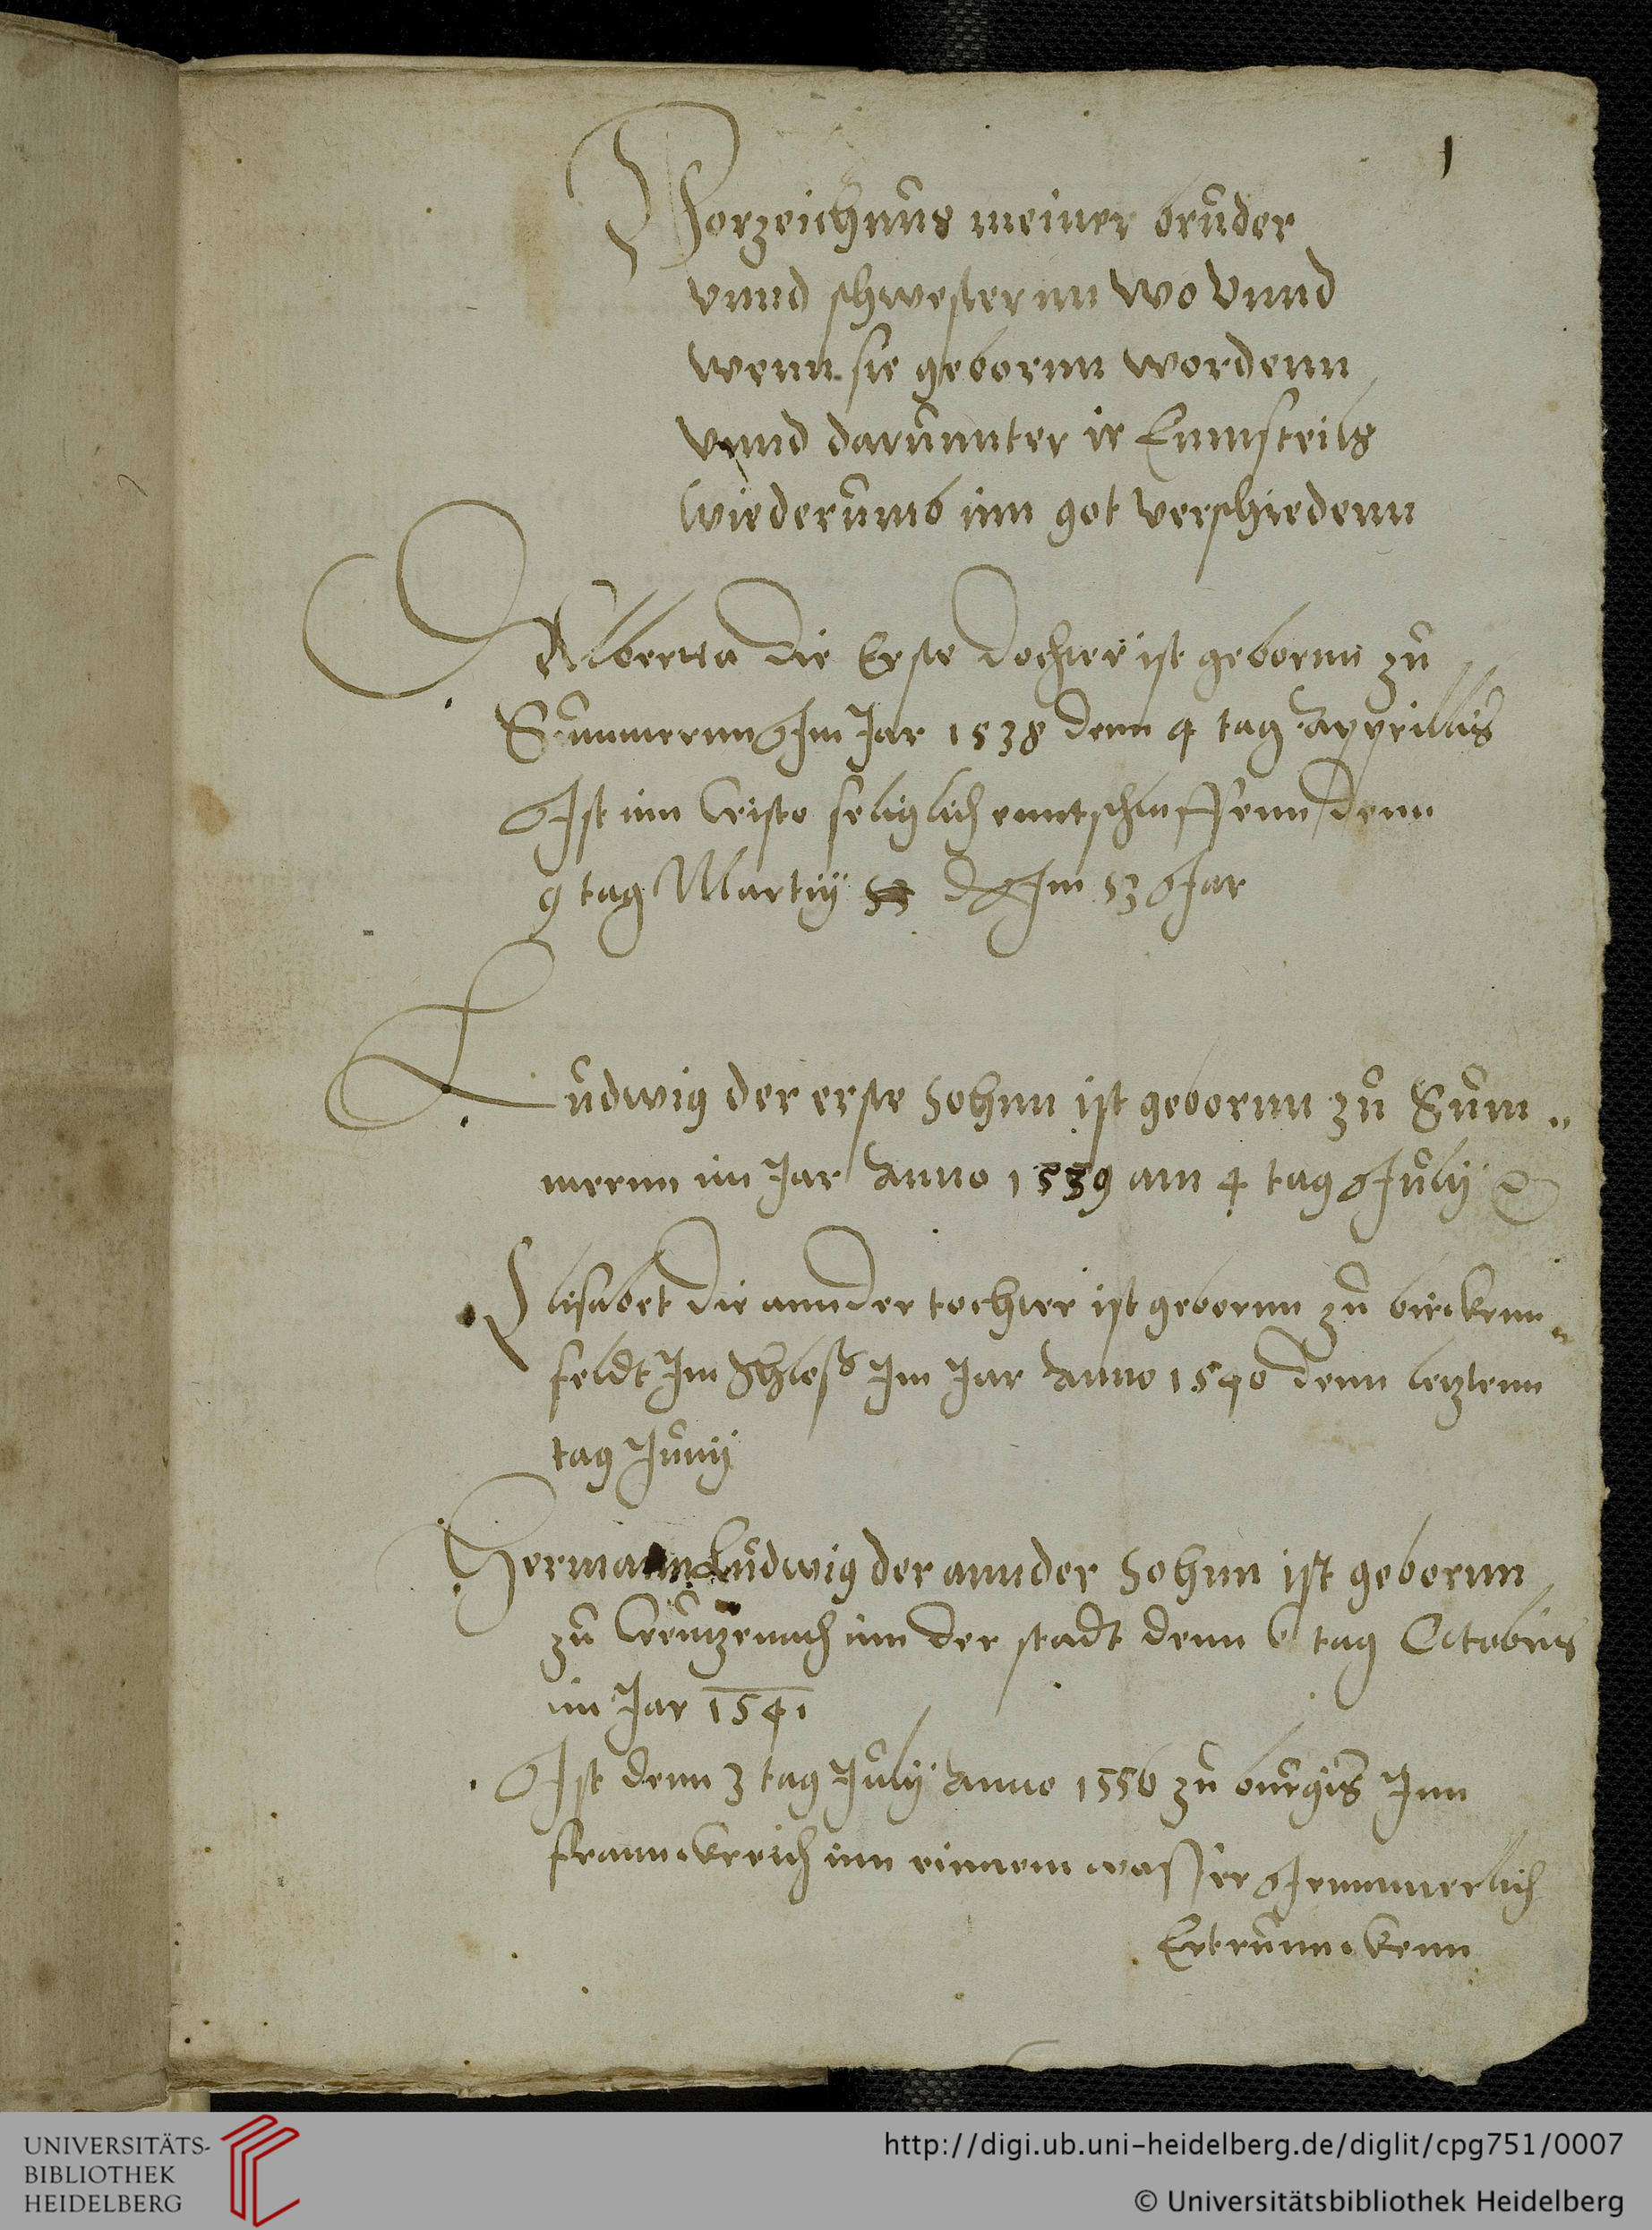 1
Vorzeichnus meiner bruder
vnnd schwesternn wo vnnd
wenn sie gebornn wordenn
vnnd darunnter ir Einnsteils
wiederumb inn got verschiedenn
Alberta die Erste dochter ist gebornn zu
Summernn Im Jar 1538 denn 4 tag Apprillis
Ist inn Cristo seliglich enntschlaffenn denn
9 tag Martiy Im 53 Jar
Ludwig der erste Sohnn ist gebornn zu Sum„
mernn im Jar Anno 1539 am 4 tag July
Elisabet die annder tochter ist gebornn zu birckenn„
feldt Im Schloß Im Jar Anno 1540 denn letztenn
tag Juny
Hermann Ludwig der annder Sohnn ist gebornn
zu Creutzenach inn der stadt denn 6 tag Octobris
im Jar 1541
Ist denn 3 tag July Anno 1556 zu burgis Inn
Frannckreich inn einnem wasser Jemmerlich
Ertrunnckenn
UNIVERSITÄTS-
BIBLIOTHEK
HEIDELBERG
http://digi.ub.uni-heidelberg.de/diglit/cpg751/0007
© Universitätsbibliothek Heidelberg